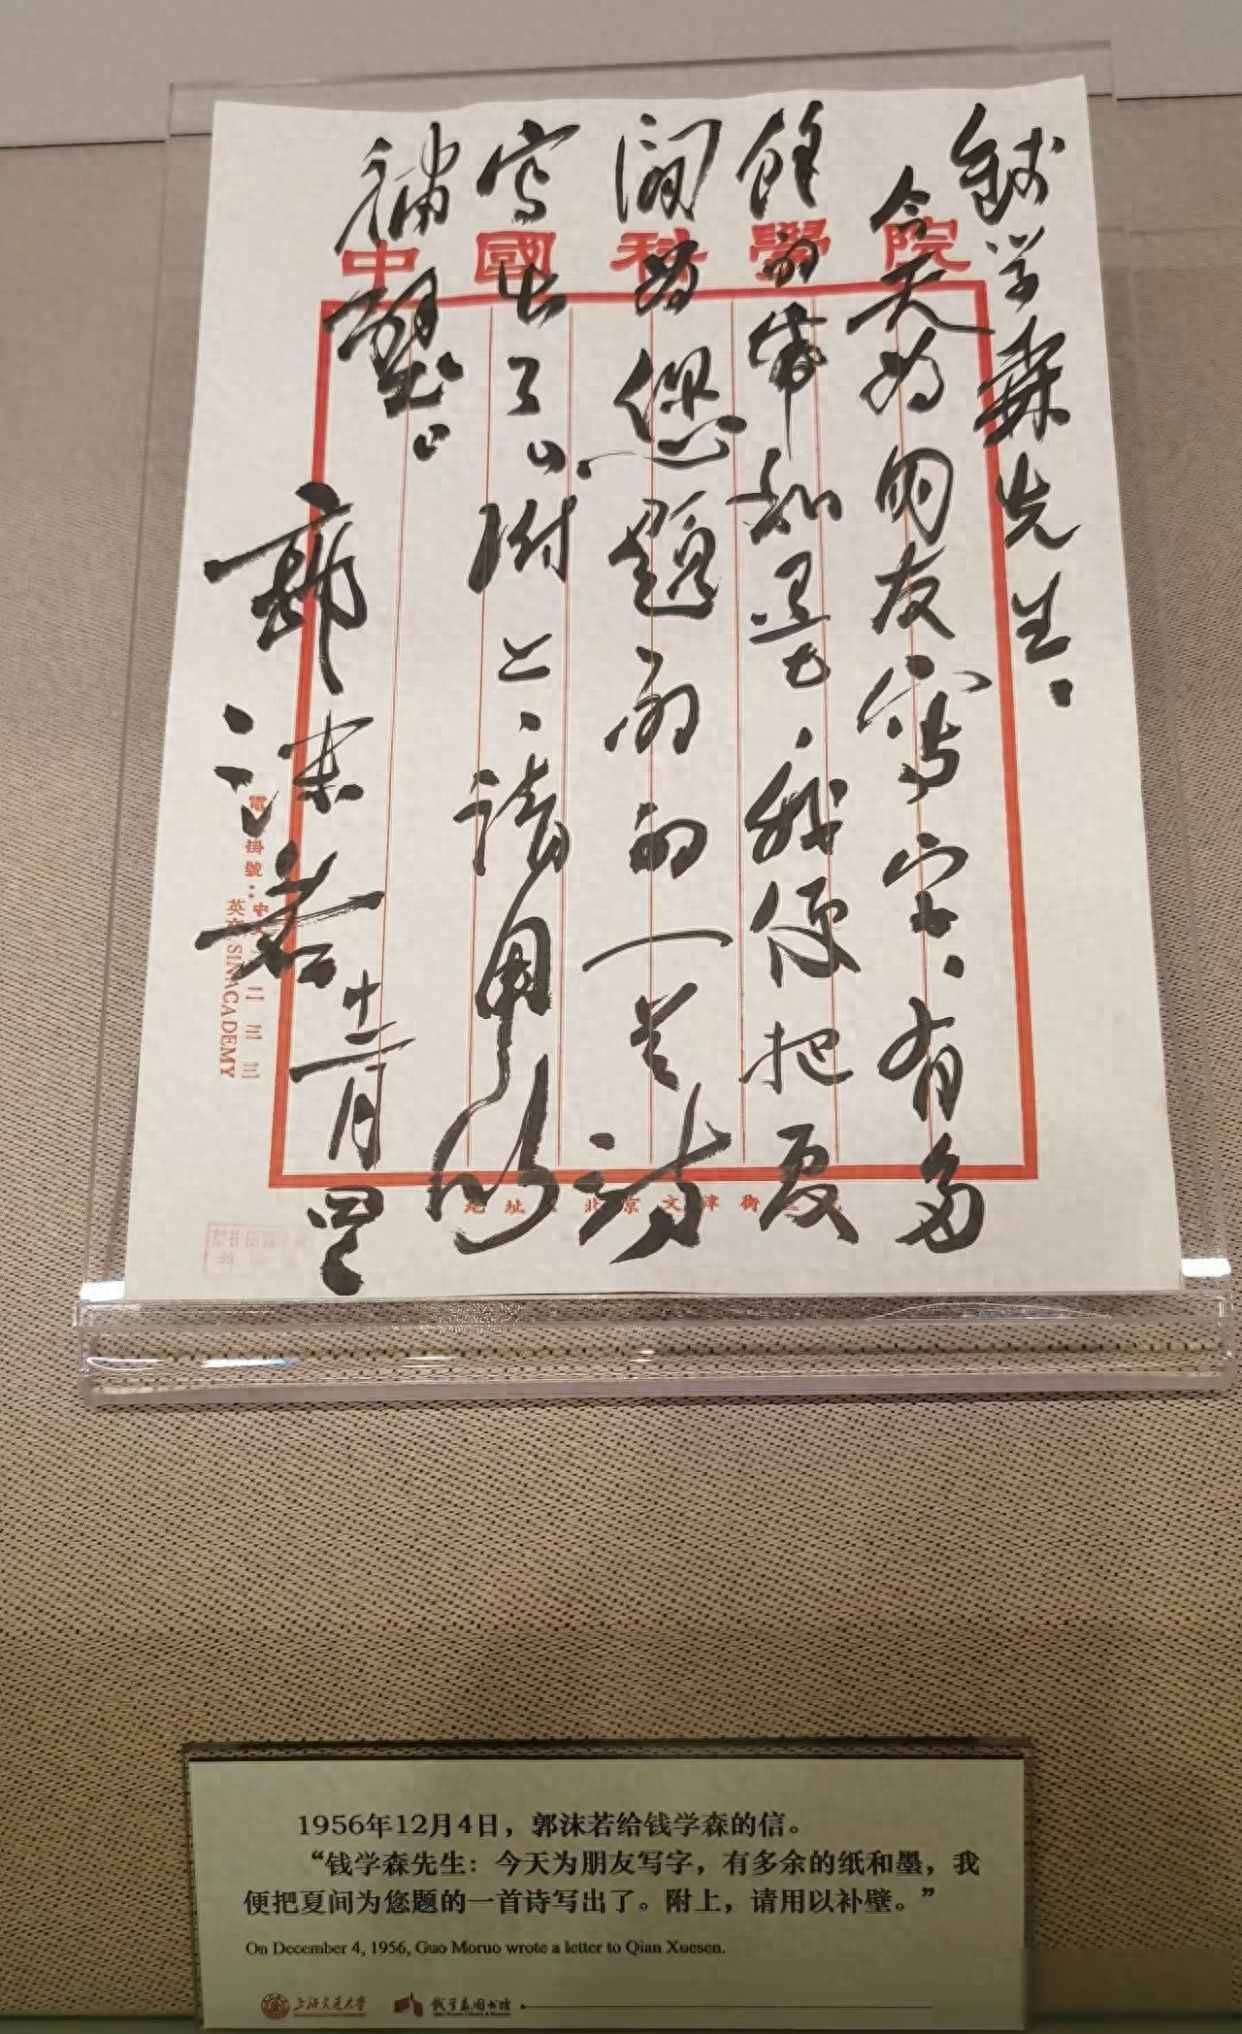 中國科學院
钱学森先生：
今天为朋友写字，有多
馀的帋和墨，我便把夏
间为您题扇的一首诗
写出了。附上，请用以
補壁。
郭沫若
十二月四日
掛號：中
英文 SINACADEMY
地址 北京文津街
1956年12月4日，郭沫若给钱学森的信。
“钱学森先生：今天为朋友写字，有多余的纸和墨，我
便把夏间为您题的一首诗写出了。附上，请用以补壁。”
On December 4, 1956, Guo Moruo wrote a letter to Qian Xuesen.
上海交通大学
钱学森图书馆